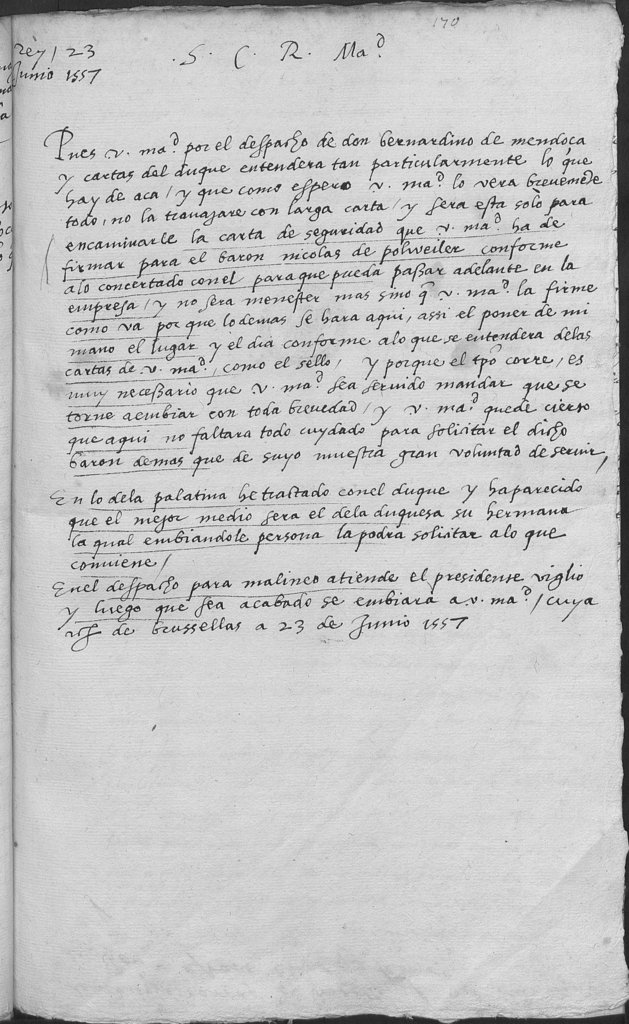 170
Rey / 23
Junio 1557
.S. C. R. Ma.d
Pues v. ma.d por el despacho de don bernardino de mendoça
y cartas del duque entendera tan particularmente lo que
hay de aca / y que como espero v. ma.d lo vera brevemẽte
todo, no la travajare con larga carta / y sera esta solo para
encaminarle la carta de seguridad que v. ma.d ha de
firmar para el baron nicolas de polweiler conforme
alo concertado conel para que pueda passar adelante en la
empresa / y no sera menester mas sino q̃ v. ma.d la firme
como va por que lo demas se hara aqui, assi el poner de mi
mano el lugar y el dia conforme alo que se entendera delas
cartas de v. ma.d, como el sello, y porque el tpõ corre, es
muy necessario que v. ma.d sea servido mandar que se
torne aembiar con toda brevedad / y v. ma.d quede cierto
que aqui no faltara todo cuydado para solicitar el dicho
baron demas que de suyo muestra gran voluntad de servir,
En lo dela palatina he tractado conel duque y ha parecido
que el mejor medio sera el dela duquesa su hermana
la qual embiandole persona la podra solicitar alo que
conviene /
Enel despacho para malineo atiende el presidente viglio
y luego que sea acabado se embiara a v. ma.d / cuya
de brussellas a 23 de Junio 1557